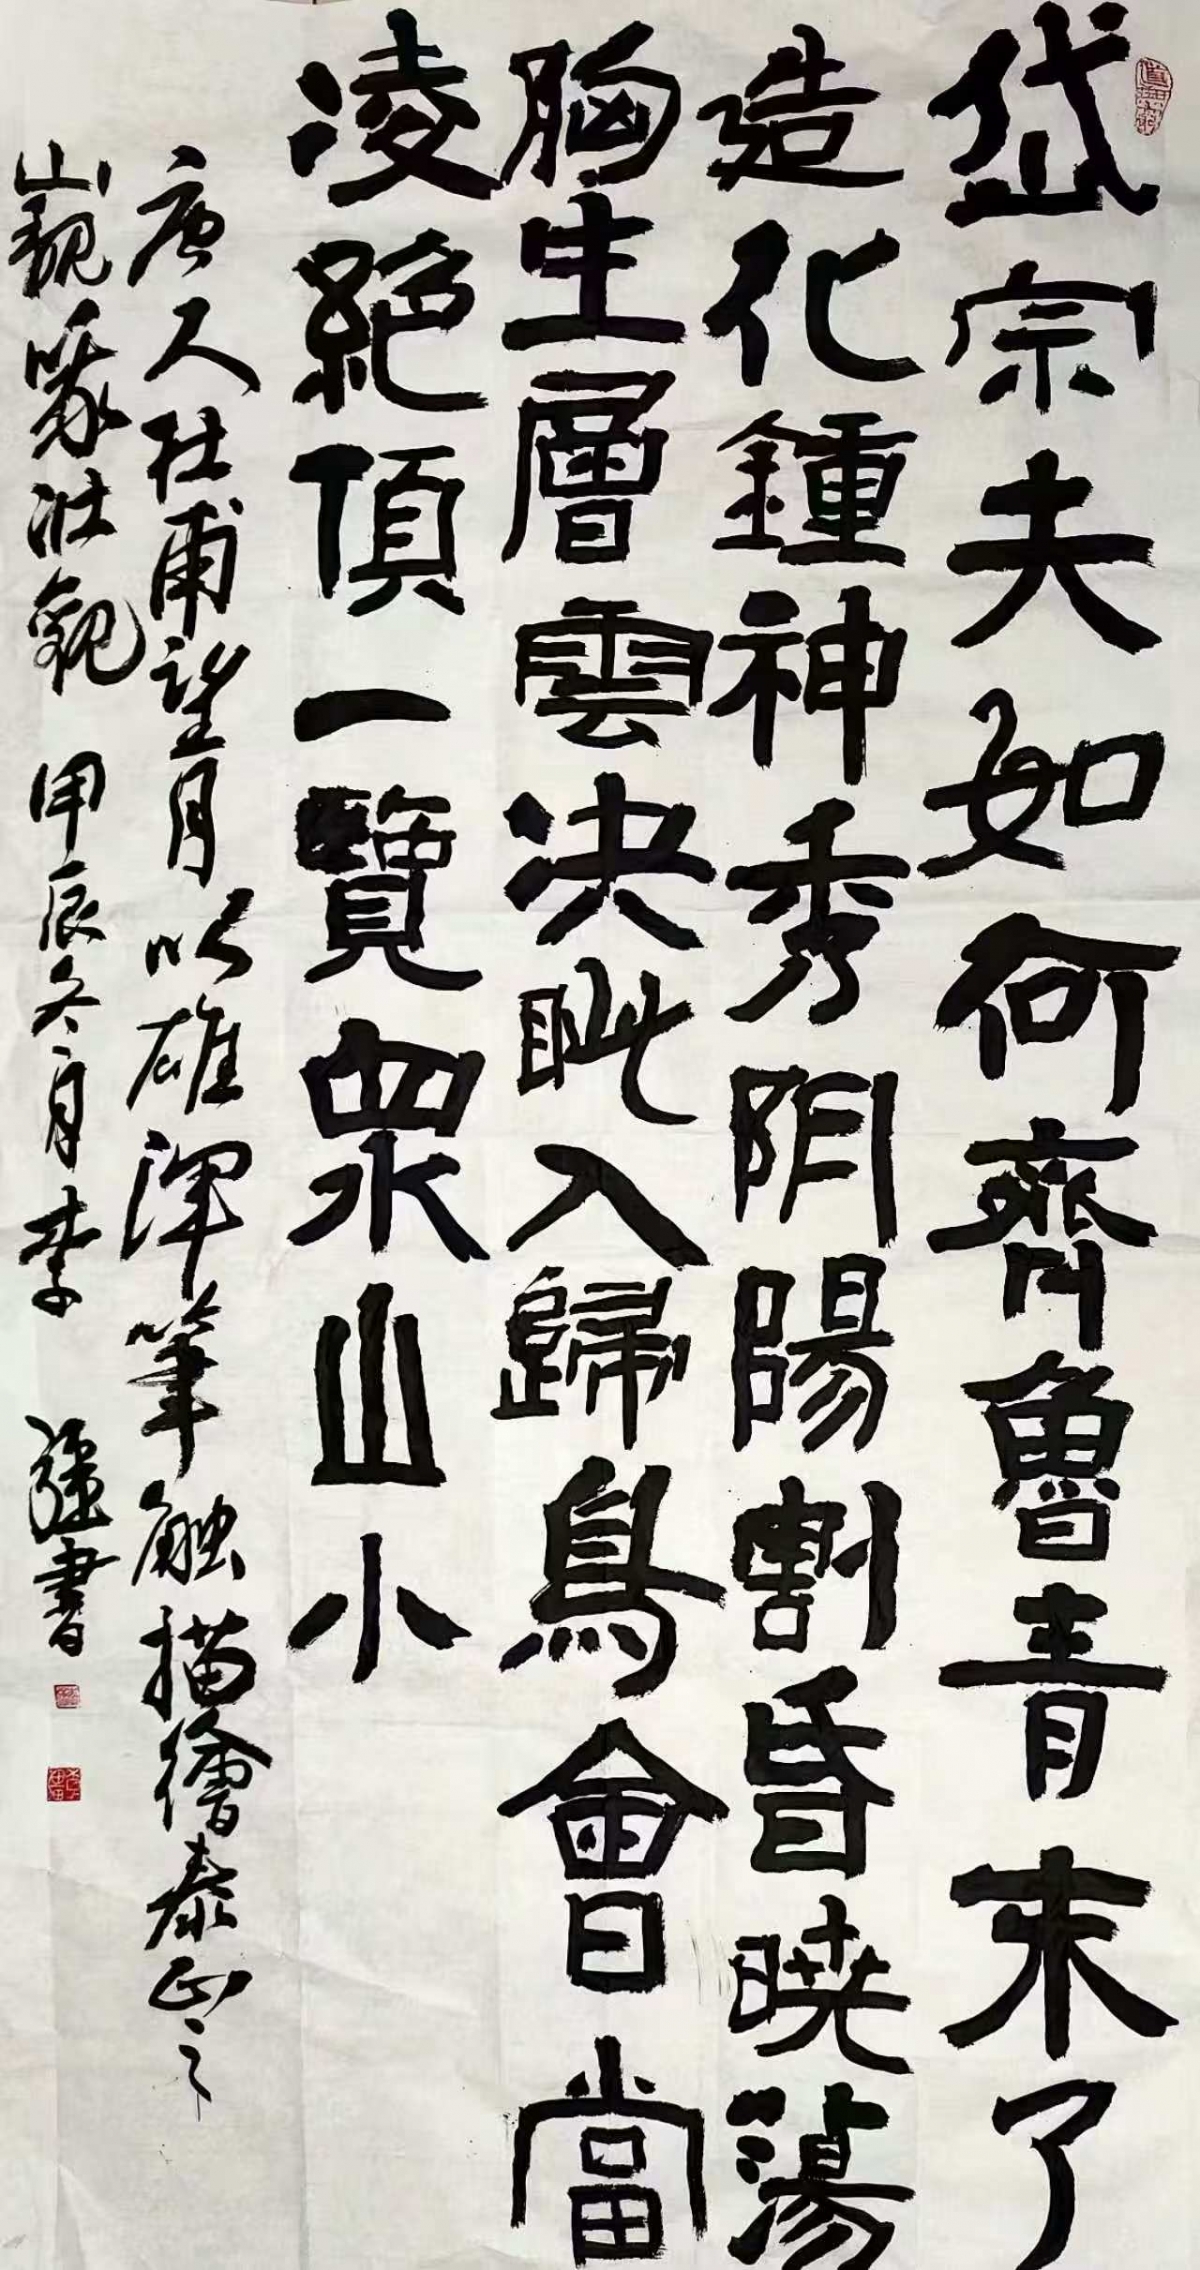 岱宗夫如何齊魯青未了
造化鍾神秀阴陽割昏曉蕩
胸生層雲決眦入歸鳥會當
凌絕頂一覽眾山小
唐人杜甫望月以雄渾筆触描繪泰山之
巍峨壯觀 甲辰冬月李強書